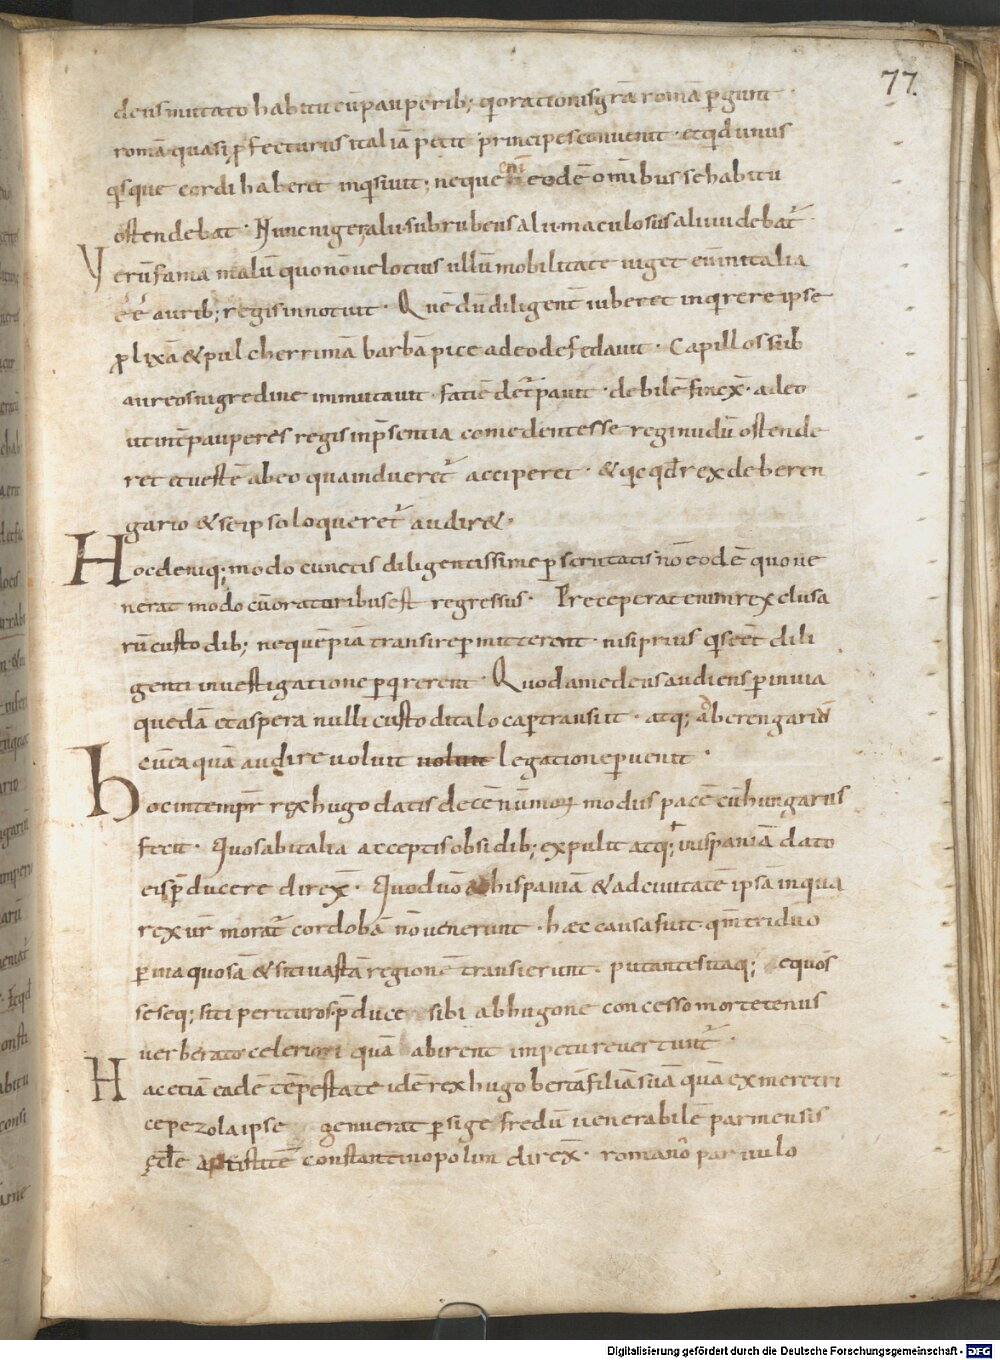 77
deus mutato habitu cū pauperib; q̄ orationis grā romā ꝑgunt ·
romā quasi ꝓfecturus italiā petit principes convenit · et qd unus
qisque cordi haberet inq̄sivit; neque enī eodē omībus se habitu
ostendebat · Nunc niger alii subrubens alii maculosus alii videbat᷑ ·
Verū fama malū quo nō velocius ullū mobilitate viget eū in italia
eē aurib; regis innotuit · Quē dū diligent̄ iuberet inq̄rere ipse
ꝓlixā & pulcherrimā barbā pice adeo defedavit · Capillos sub
aureos nigredine immutavit · fatiē det᷑pavit · debilē finex̄ · adeo
ut int̄ pauperes regis in p̄sentia comedentes se regi nudū ostende
ret et vestē ab eo qua indueret᷑ acciperet · & qicqd rex de beren
gario & se ipso loqueret᷑ audir& ·
Hoc deniq; modo cunctis diligentissime ꝑscrutatis nō eodē quo ve
nerat modo cū oratoribus est regressus · Preceperat enim rex clusa
rū custodib; ne quēpiā transire ꝑmitterent · nisi prius q̄s eēt dili
genti investigatione ꝑq̄rerent · Quod amedeus audiens ꝑ invia
quedā et aspera nulli custodita loca ꝑtransiit · atq; a berengariū
cū ea quā audire voluit legatione ꝑvenit ·
Hoc in tempr̄ rex hugo datis decē nūmoꝝ modiis pacē cū hungariis
fecit · Quos ab italia acceptis obsidib; expulit atq; in ispaniā dato
eis p̄ducere direx̄ · Quod vō hispaniā & ad civitatē ipsā in qua
rex vr̄ morat᷑ cordobā nō venerunt · hæc causa fuit · qm̄ triduo
ꝑ inaquosā & siti vastā regionē transierunt · putantes itaq; equos
seseq; siti perituros · p̄duce sibi ab hugone concesso mortetenus
verberato celeriori quā abirent impetu revertunt᷑ ·
Hac etiā eadē tēpestate idē rex hugo bertā filiā suā quā ex meretri
ce pezola ipse genuerat ꝑ sigefredū venerabilē parmensis
ęcl̄e antistitē constantinopolim direx̄ · romano parvulo
Digitalisierung gefördert durch die Deutsche Forschungsgemeinschaft · DFG